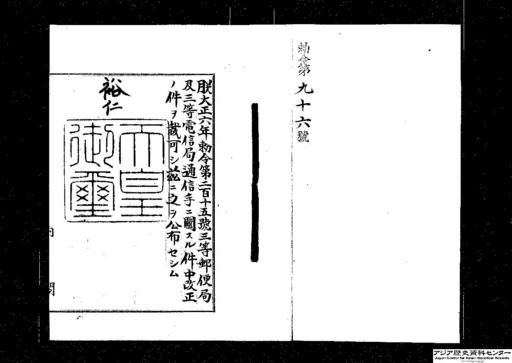 勅令第九十六號
朕大正六年勅令第二百十五號三等郵便局
及三等電信局通信手ニ關スル件中改正
ノ件ヲ裁可シ茲ニ之ヲ公布セシム
裕仁
天皇御璽
アジア歴史資料センター
Japan Center for Asian Historical Records